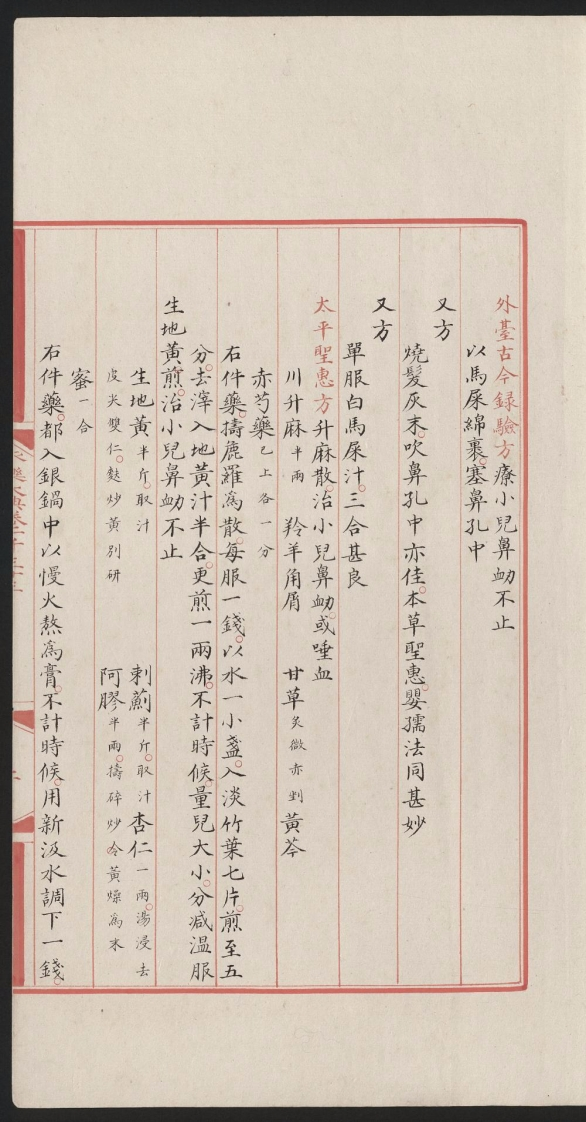 外臺古今録驗方療小兒鼻衂不止
以馬屎綿裹塞鼻孔中
又方
燒髮灰末吹鼻孔中亦佳本草聖惠嬰孺法同甚妙
又方
單服白馬屎汁三合甚良
太平聖惠方升麻散治小兒鼻衂或唾血
川升麻半兩 羚羊角屑 甘草炙微赤剉 黃芩
赤芍藥已上各一分
右件藥擣麄羅為散每服一錢以水一小盞入淡竹葉七片煎至五
分去滓入地黃汁半合更煎一兩沸不計時候量兒大小分减温服
生地黃煎治小兒鼻衂不止
生地黃半斤取汁 刺薊半斤取汁 杏仁一兩湯浸去
皮尖雙仁麩炒黃別研 阿膠半兩擣碎炒令黃燥為末
蜜一合
右件藥都入銀鍋中以慢火熬為膏不計時候用新汲水調下一錢